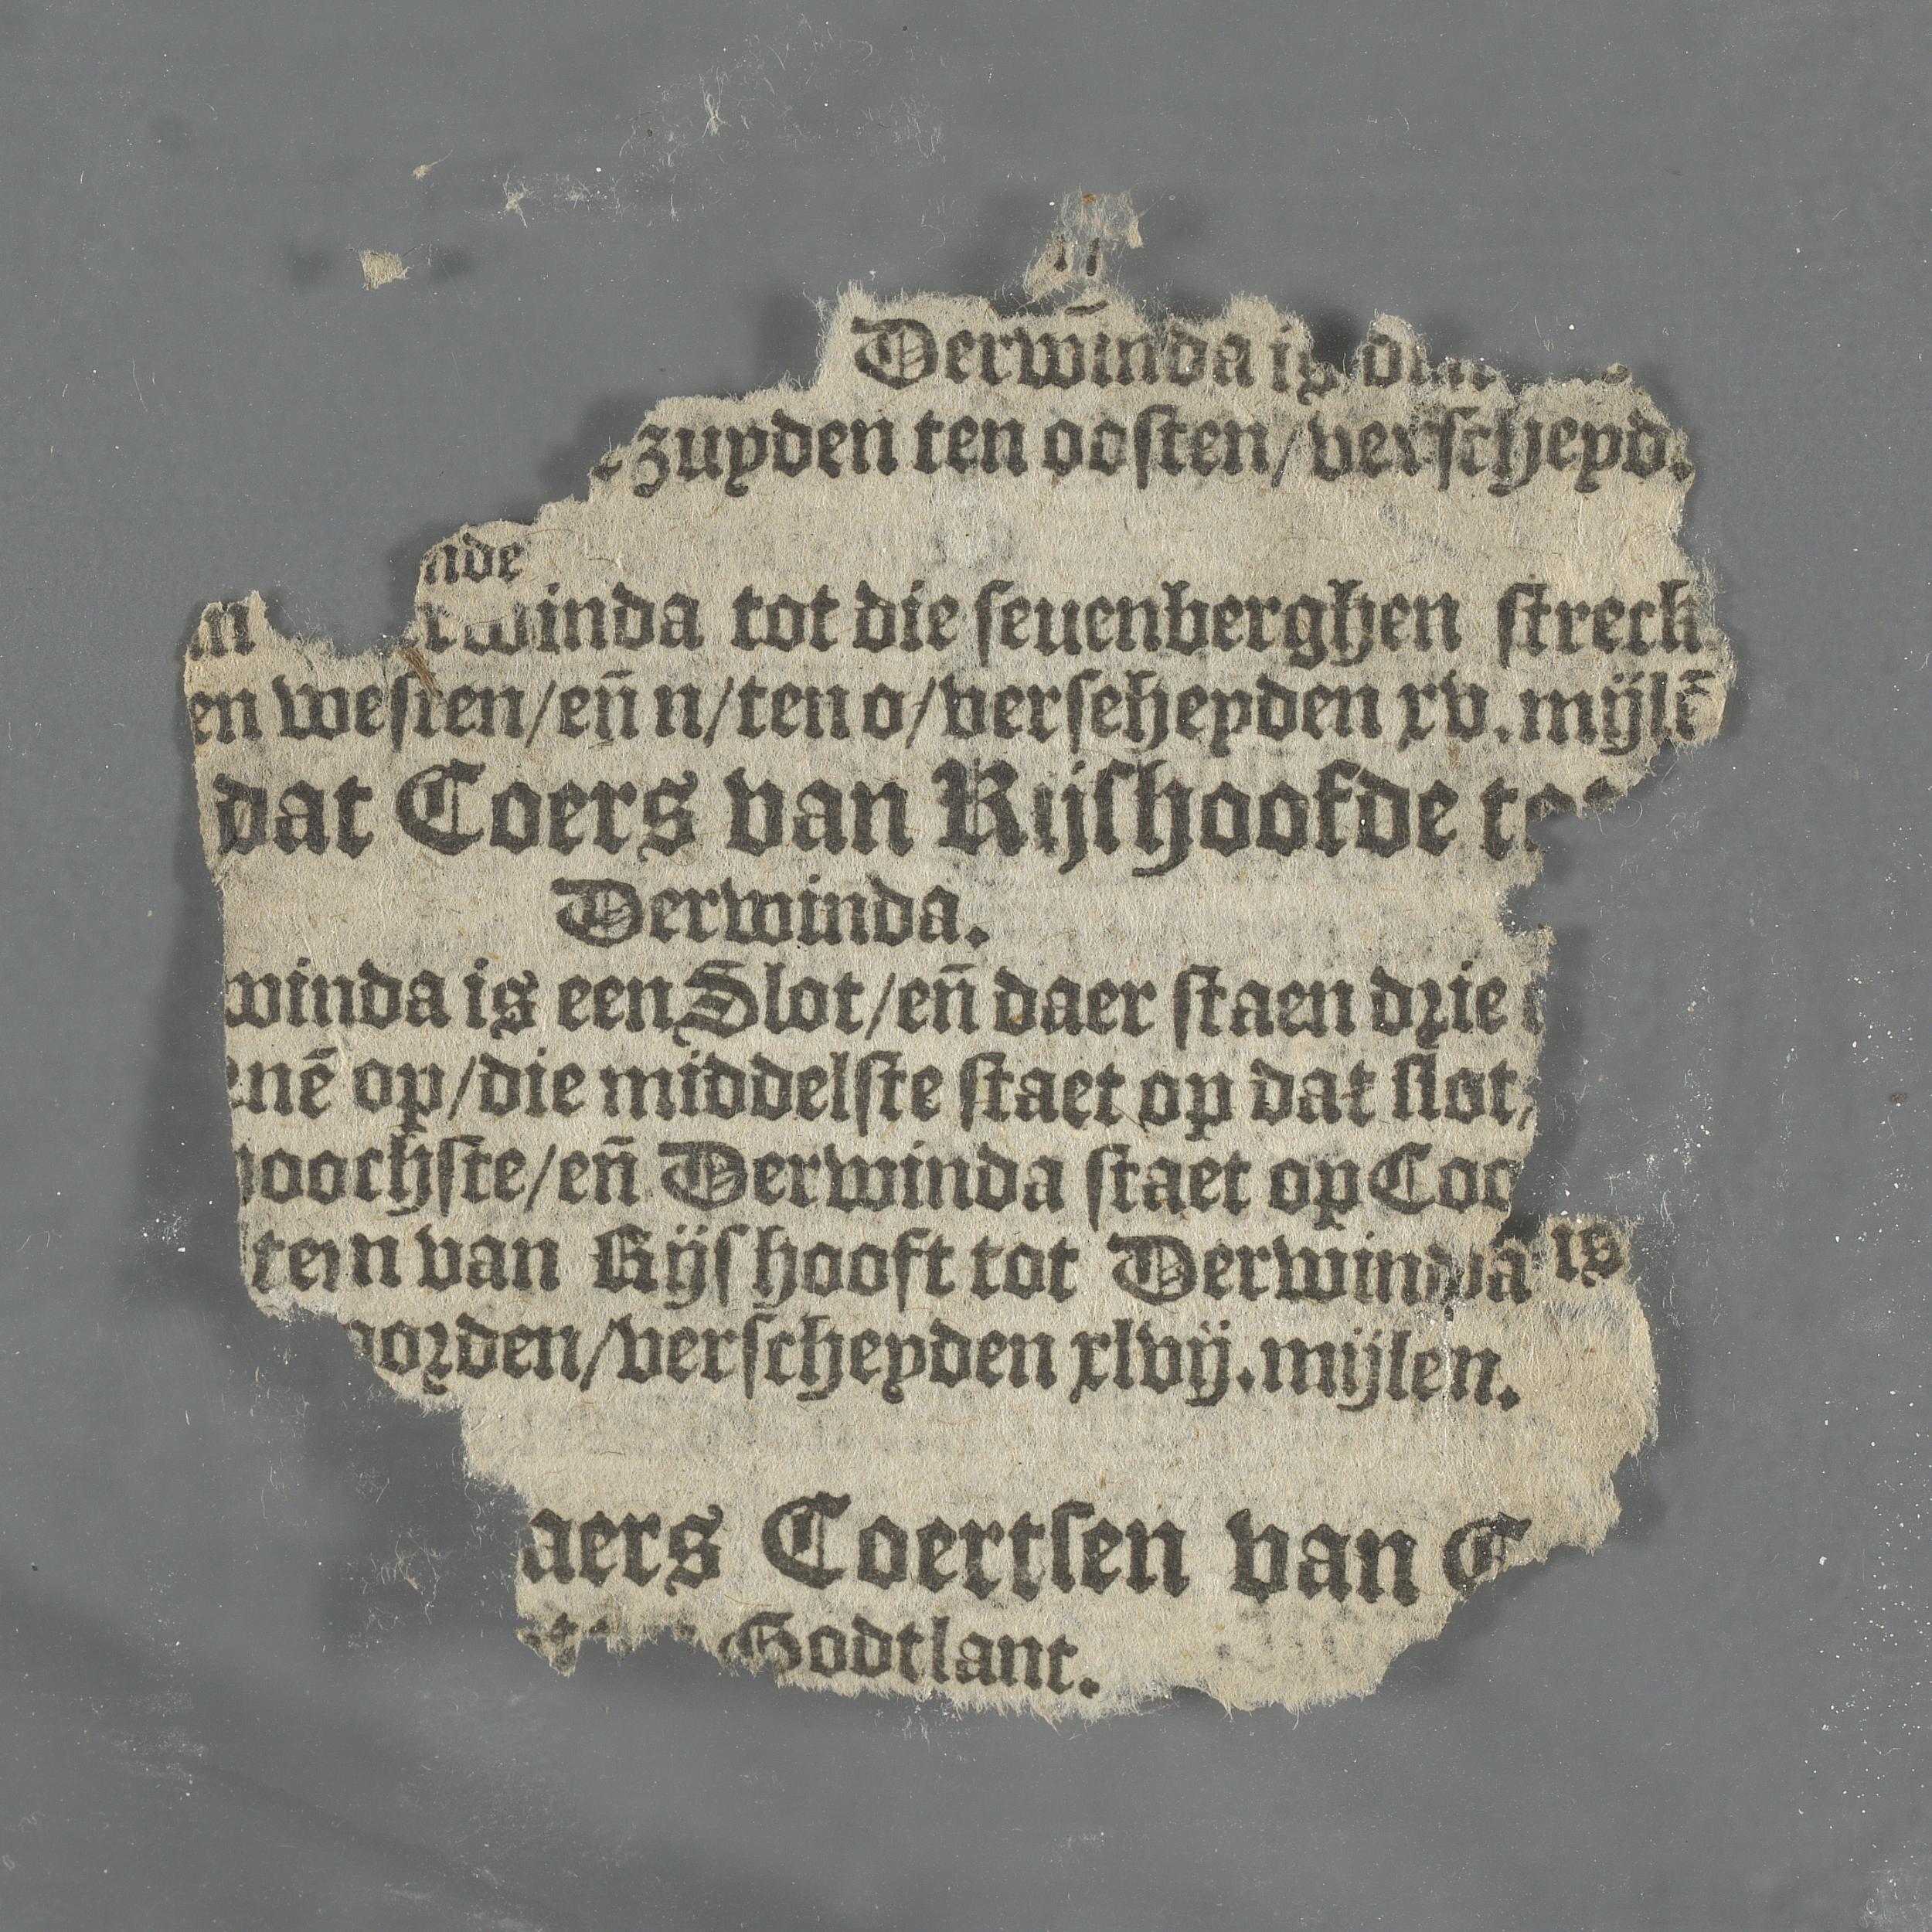 Derwīnda
zuyden ten oosten/verscheyd.
nde
n rwinda tot die seuenberghen streck
en westen/eñ n/ten o/versehepden xv.mijlē
dat Coers van Rijshoofde
Derwinda.
winda is een Slot/eñ daer staen drie
enē op/die middelste staet op dat slot,
oochste/eñ Derwinda staet op Coo
tern van Rijs hooft tot Derwinda is
oorden/verscheyden xlvij.mijlen.
aers Coertsen van
Godtlant.